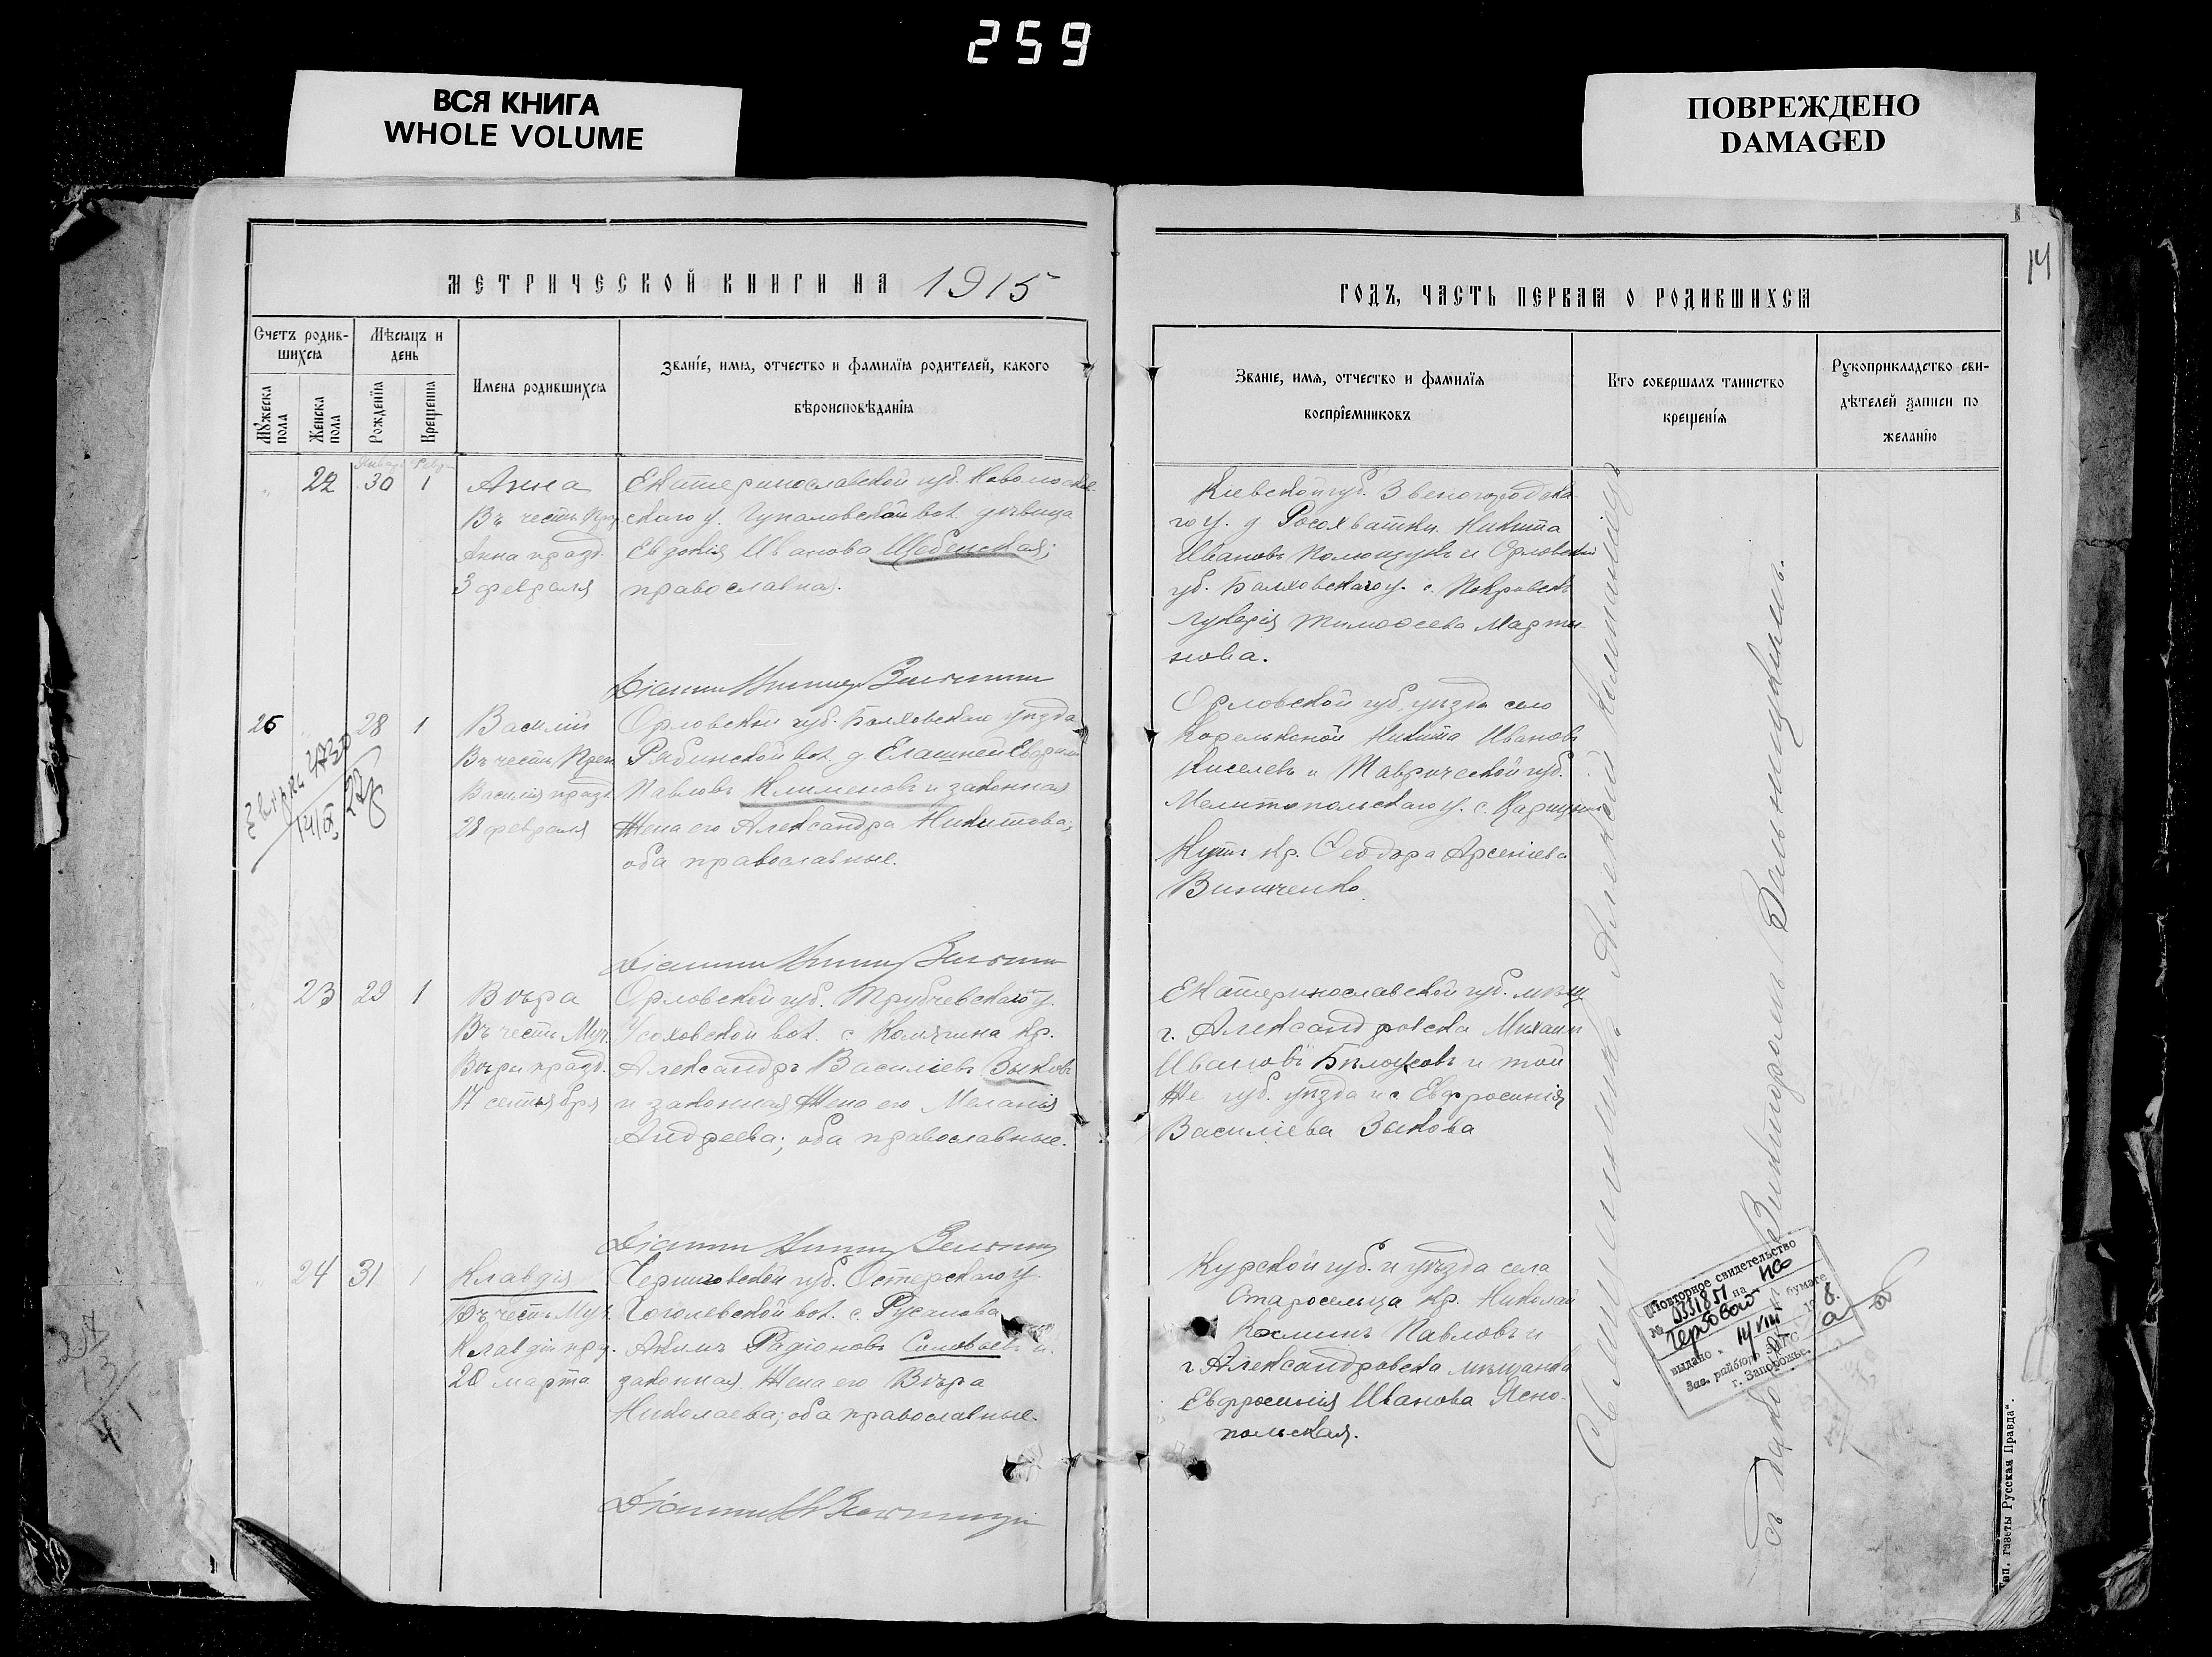 259
ВСЯ КНИГА
WHOLE VOLUME
ПОВРЕЖДЕНО
DAMAGED
14
МЕТРИЧЕСКОЙ КНИГИ НА 1915
ГОДЪ, ЧАСТЬ ПЕРВАЯ О РОДИВШИХСЯ
Счетъ родив-
шихся
Мѣсяцъ и
день
Мужеска
пола
Женска
пола
Рожденія
Крещенія
Имена родившихся
Званіе, имя, отчество и фамилія родителей, какого
вѣроисповѣданія
Званіе, имя, отчество и фамилія
воспріемниковъ
Кто совершалъ таинство
крещенія
Рукоприкладство сви-
дѣтелей записи по
желанію
22 30 1
Анна
Въ честь
Анна празд.
3 февраля
Екатеринославской губ. Новомоск-
скаго у. вол. дѣвица
Евдокія Иванова
православная.
Кіевской губ. Звенигородска
го у. д Росохватки Никита
Ивановъ и Орловской
губ. Болховскаго у. с. Покровска
Гукерія Тимоѳеева Марты-
нова.
25 28 1
Василій
Въ честь Преп.
Василія празд.
28 февраля
Орловской губ. Болховскаго уѣзда
вол. д.
Павловъ Клименовъ и законная
Жена его Александра Никитова;
оба православные.
Орловской губ. уѣзда село
Никита Ивановъ
Киселевъ и Таврической губ.
Мелитопольскаго у. с.
Кутъ кр. Ѳеодора Арсеніева
Виниченко.
23 29 1
Вѣра
Въ честь Муч.
Вѣры празд.
17 сентября
Орловской губ. Трубчевскаго у.
Усоховской вол. с Комягина кр.
Александръ Василіевъ Зыковъ
и законная Жена его Меланія
Андреева; оба православные.
Екатеринославской губ. мѣщ
г. Александровска Михаил
Ивановъ Бѣлоусовъ и той
Же губ. уѣзда и с Евфросинія
Василіева Зыкова
24 31 1
Клавдія
Въ честь Муч.
Клавдіи пр.
20 марта
Черниговской губ. Остерскаго у.
Гоголевской вол. с. Русанова
Акимъ Радіоновъ Соловьевъ и
законная Жена его Вѣра
Николаева; оба православные.
Курской губ. и уѣзда села
Старосельца кр. Николай
Косминъ Павловъ и
г Александровска мѣщанка
Евфросинія Иванова Ясно-
польская.
Священникъ Алексій
съ Викторомъ
Повторное свидетельство
№ 0331851 на
Гербовой бумаге
выдано " 14 VIII
Зав. райбюро ЗАГС
г. Запорожье.
Тип. газеты Русская Правда".